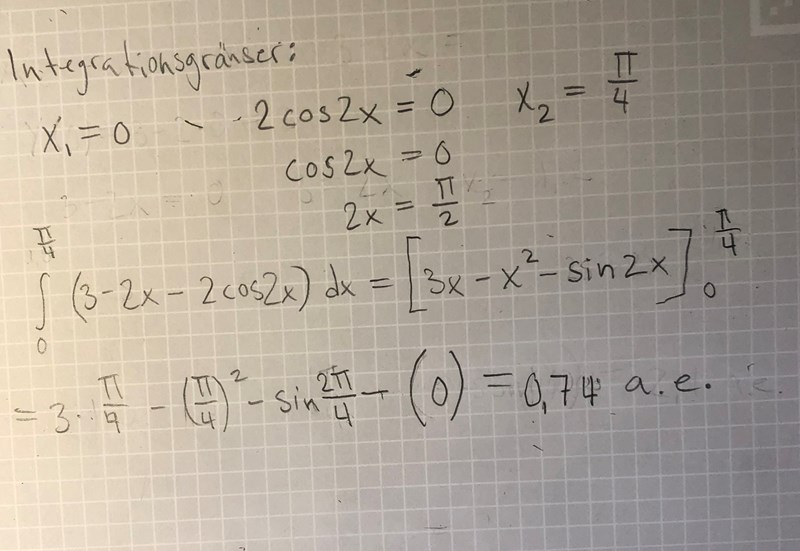 Integrationsgränser:
x₁ = 0 2cos2x = 0 x₂ = π/4
cos2x = 0
2x = π/2
∫₀^(π/4) (3-2x-2cos2x) dx = [3x - x² - sin2x]₀^(π/4)
= 3·π/4 - (π/4)² - sin 2π/4 - (0) = 0,74 a.e.